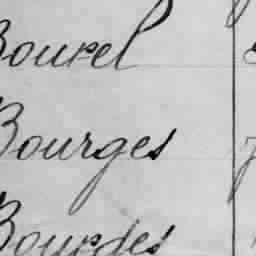 Bourel
Bourges
Bourdes